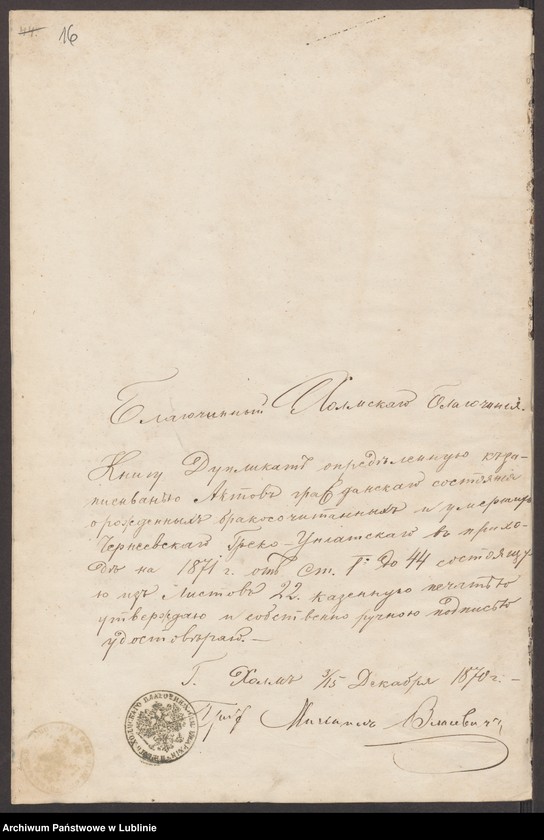 44. 16
Благочинный Холмскаго Благочинія.
Книгу Дупликатъ опредѣленную къ за-
писыванью Актовъ гражданскаго состоянія
о рожденныхъ бракосочитанныхъ и умершихъ
Чернеевскаго Греко-Уніатскаго въ прихо-
дѣ на 1871 г. отъ Ст. 1й до 44 состоящу-
ю изъ Листовъ 22. казенную печатью
утверждаю и собственно ручною подписью
удостовѣряю.—
Г. Холмъ 3/15 Декабря 1870 г. —
Михаилъ
Archiwum Państwowe w Lublinie